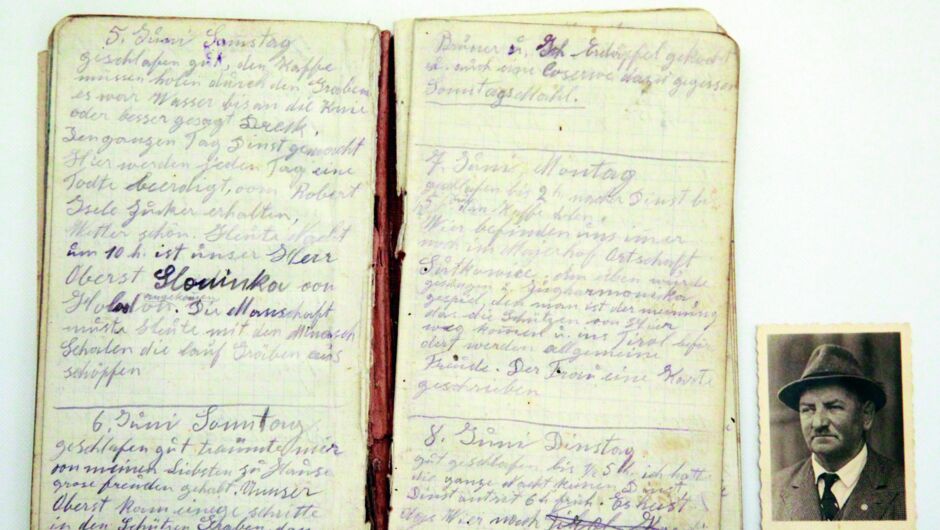 5. Juni Samstag
geschlafen gut, den Kaffe
müssen holen durch den Graben
es war Wasser bis an die Knie
oder besser gesagt Dreck,
Den ganzen Tag Dinst gemacht
Hier werden Jeden Tag eine
Todte beerdigt, vom Robert
Isele Zucker erhalten,
Wetter schön. Heute Nacht
um 10 h. ist unser Herr
Oberst Slovinka von
angekomen
Die Manschaft
muste heute mit den
Schalen die lauf Gräben aus
schöpfen
6. Juni Sonntag
geschlafen gut träumte mier
von meinen Liebsten zu Hause
grose freuden gehabt. Unnser
Oberst kam einige schritte
in den Schützen Graben das
Brüner u. Ich Erdäpfel gekocht
u. noch eine Coserwe dazu gegessen
Sonntags Mahl.
7. Juni, Montag
geschlafen bis 9 h. Dinst bis
den Kaffe holen.
Wier befinden uns imer
noch im Majerhof Ortschaft
Sutkowice, dan oben wurde
gesungen u. Zugharmonika
gespiel, den man ist der meinung
das die Schützen von Hier
weg komen u. ins Tirol beför
dert werden allgemeine
Freude. Der Frau eine Karte
geschrieben
8. Juni Dinstag
gut geschlafen bis ½ 5 h. ich hatte
die ganze Nacht keinen Dinst
Dinst antret 6 h. früh. Es heist
das Wier nach